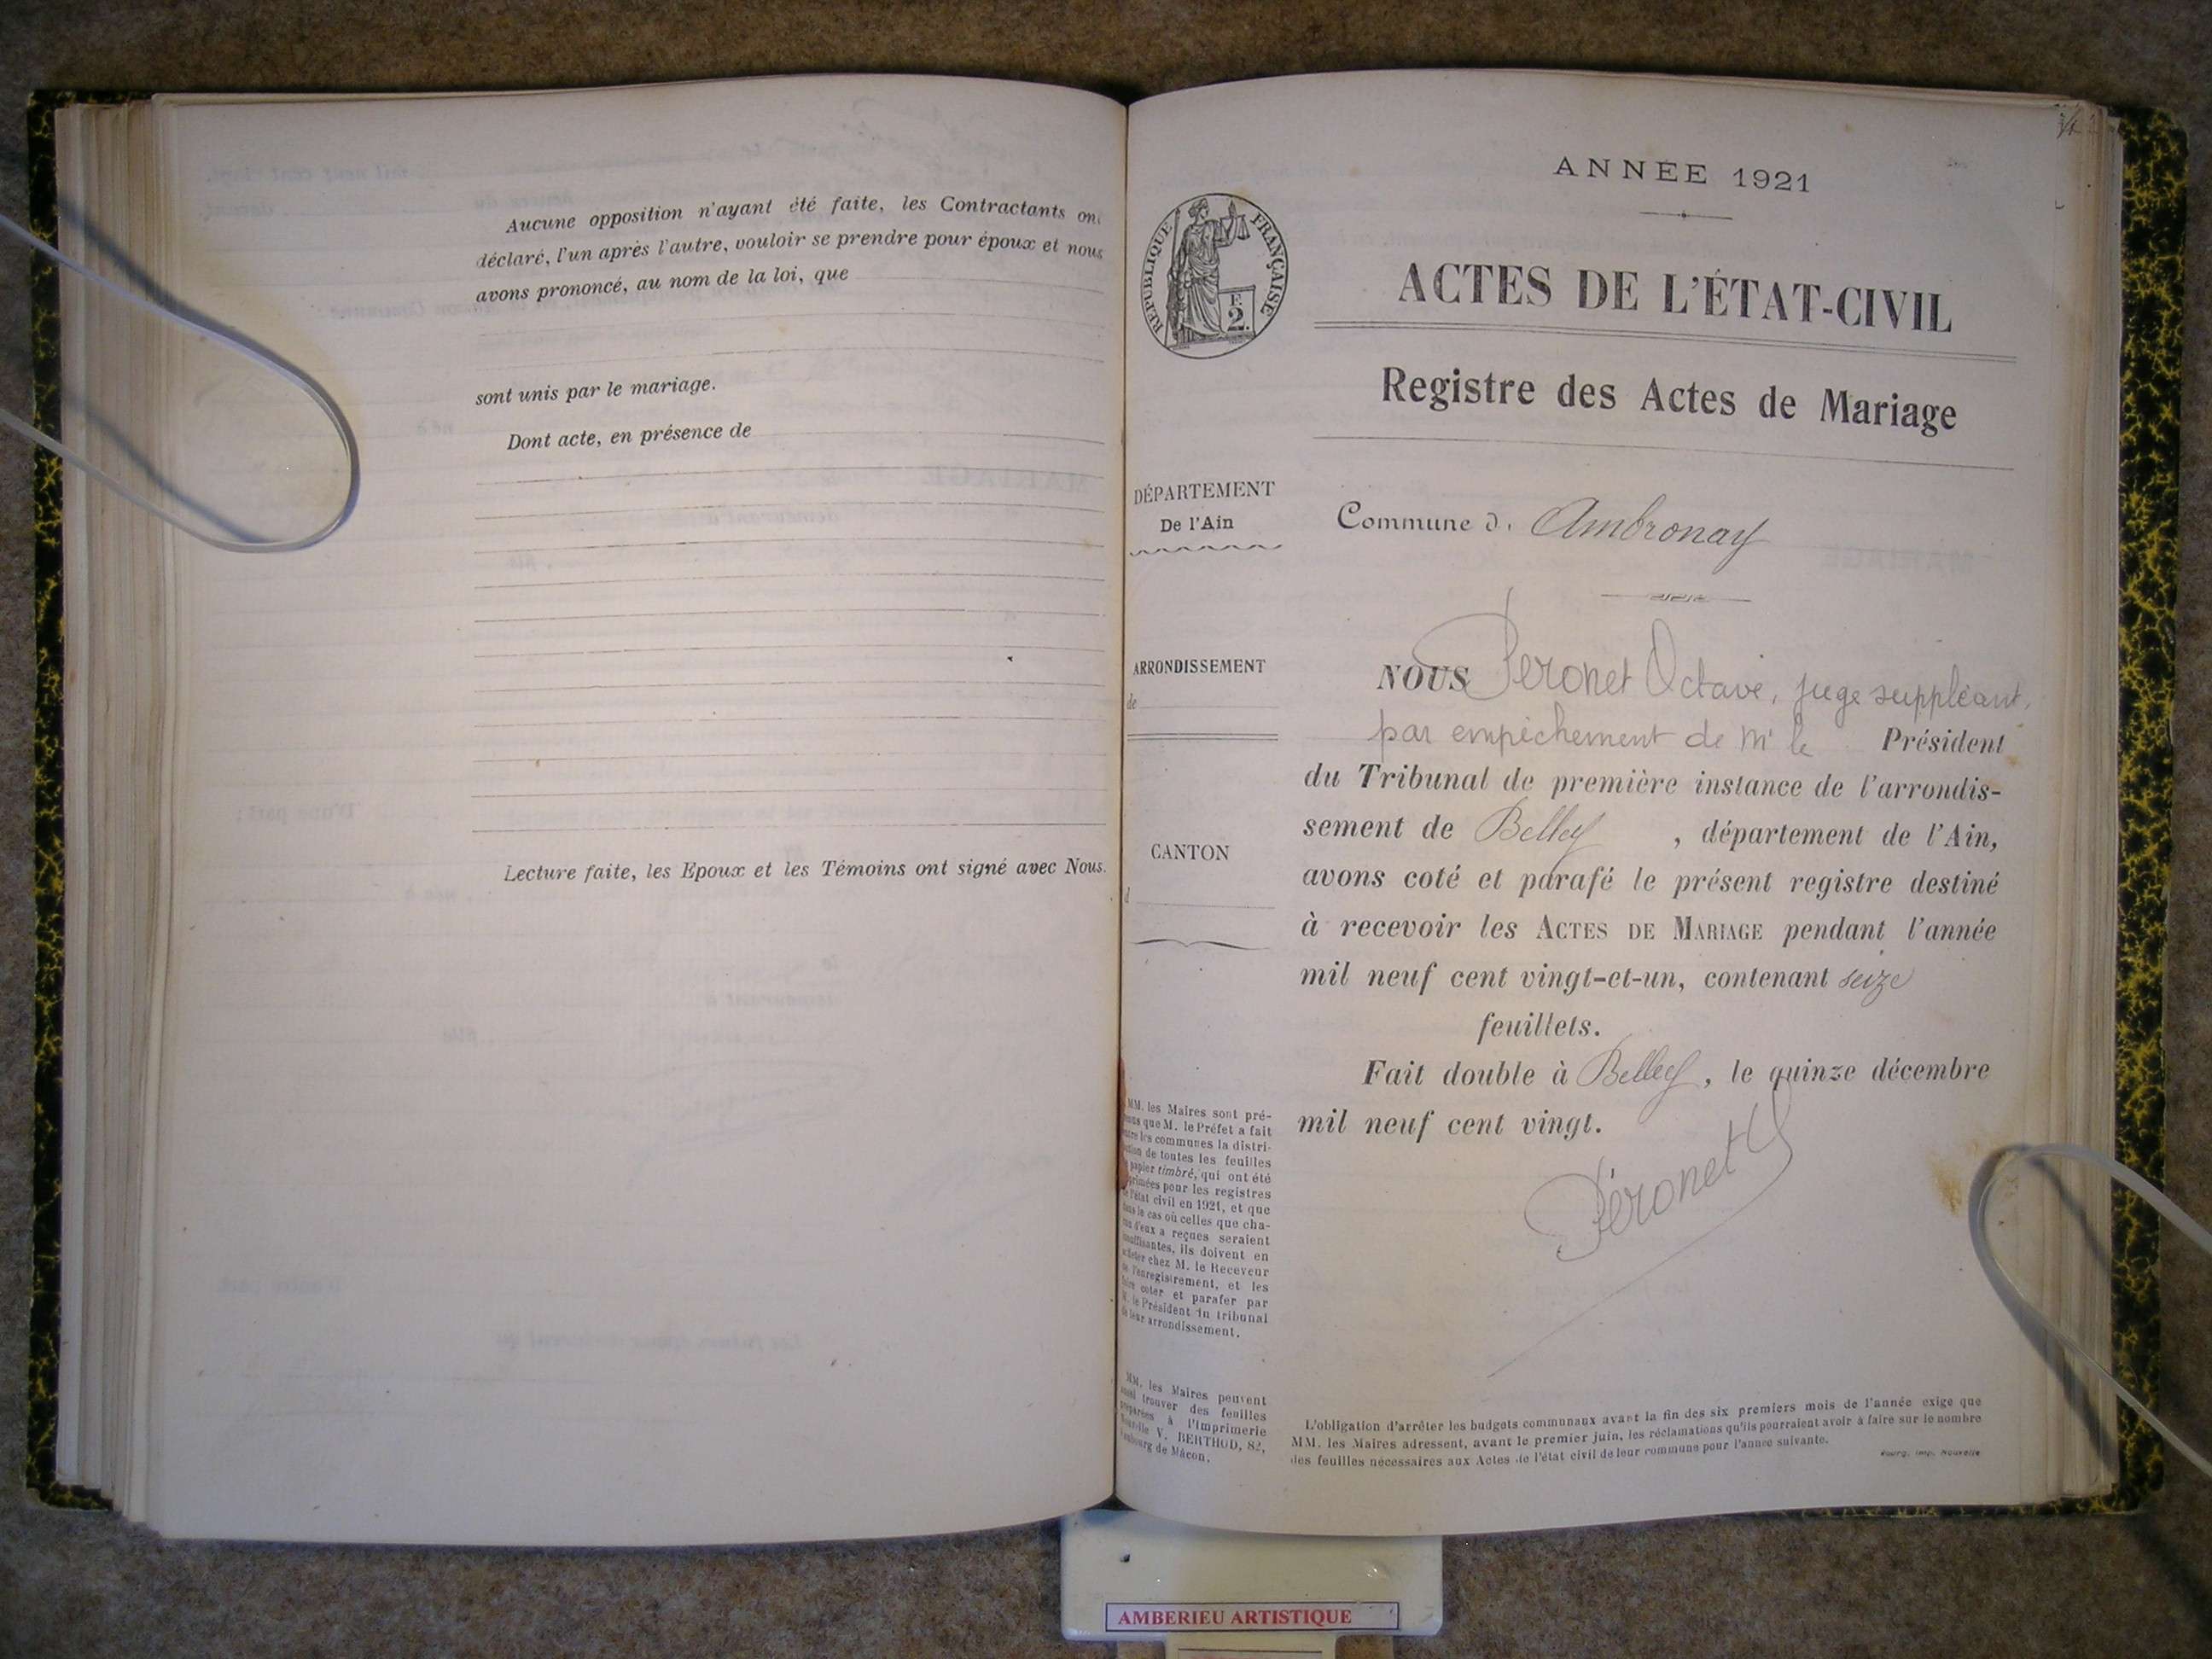 Aucune opposition n'ayant été faite, les Contractants ont
déclaré, l'un après l'autre, vouloir se prendre pour époux et nous
avons prononcé, au nom de la loi, que
sont unis par le mariage.
Dont acte, en présence de
Lecture faite, les Epoux et les Témoins ont signé avec Nous.
ANNÉE 1921
RÉPUBLIQUE FRANÇAISE
F.
2.
ACTES DE L'ÉTAT-CIVIL
Registre des Actes de Mariage
DÉPARTEMENT
De l'Ain
Commune d. Ambronay
ARRONDISSEMENT
de
CANTON
d
NOUS Peronet Octave, juge suppléant,
par empêchement de Mr le Président
du Tribunal de première instance de l'arrondis-
sement de Belley, département de l'Ain,
avons coté et parafé le présent registre destiné
à recevoir les ACTES DE MARIAGE pendant l'année
mil neuf cent vingt-et-un, contenant seize
feuillets.
Fait double à Belley, le quinze décembre
mil neuf cent vingt.
Péronet
MM. les Maires sont pré-
que M. le Préfet a fait
les communes la distri-
de toutes les feuilles
papier timbré, qui ont été
pour les registres
l'état civil en 1921, et que
le cas où celles que cha-
d'eux a reçues seraient
insuffisantes, ils doivent en
acheter chez M. le Receveur
de l'enregistrement, et les
faire coter et parafer par
M. le Président du tribunal
de leur arrondissement.
MM. les Maires peuvent
aussi trouver des feuilles
préparées à l'Imprimerie
Nouvelle V. BERTHOD, 82,
faubourg de Mâcon.
L'obligation d'arrêter les budgets communaux avant la fin des six premiers mois de l'année exige que
MM. les Maires adressent, avant le premier juin, les réclamations qu'ils pourraient avoir à faire sur le nombre
des feuilles nécessaires aux Actes de l'état civil de leur commune pour l'année suivante.
Bourg, Imp. Nouvelle
AMBERIEU ARTISTIQUE